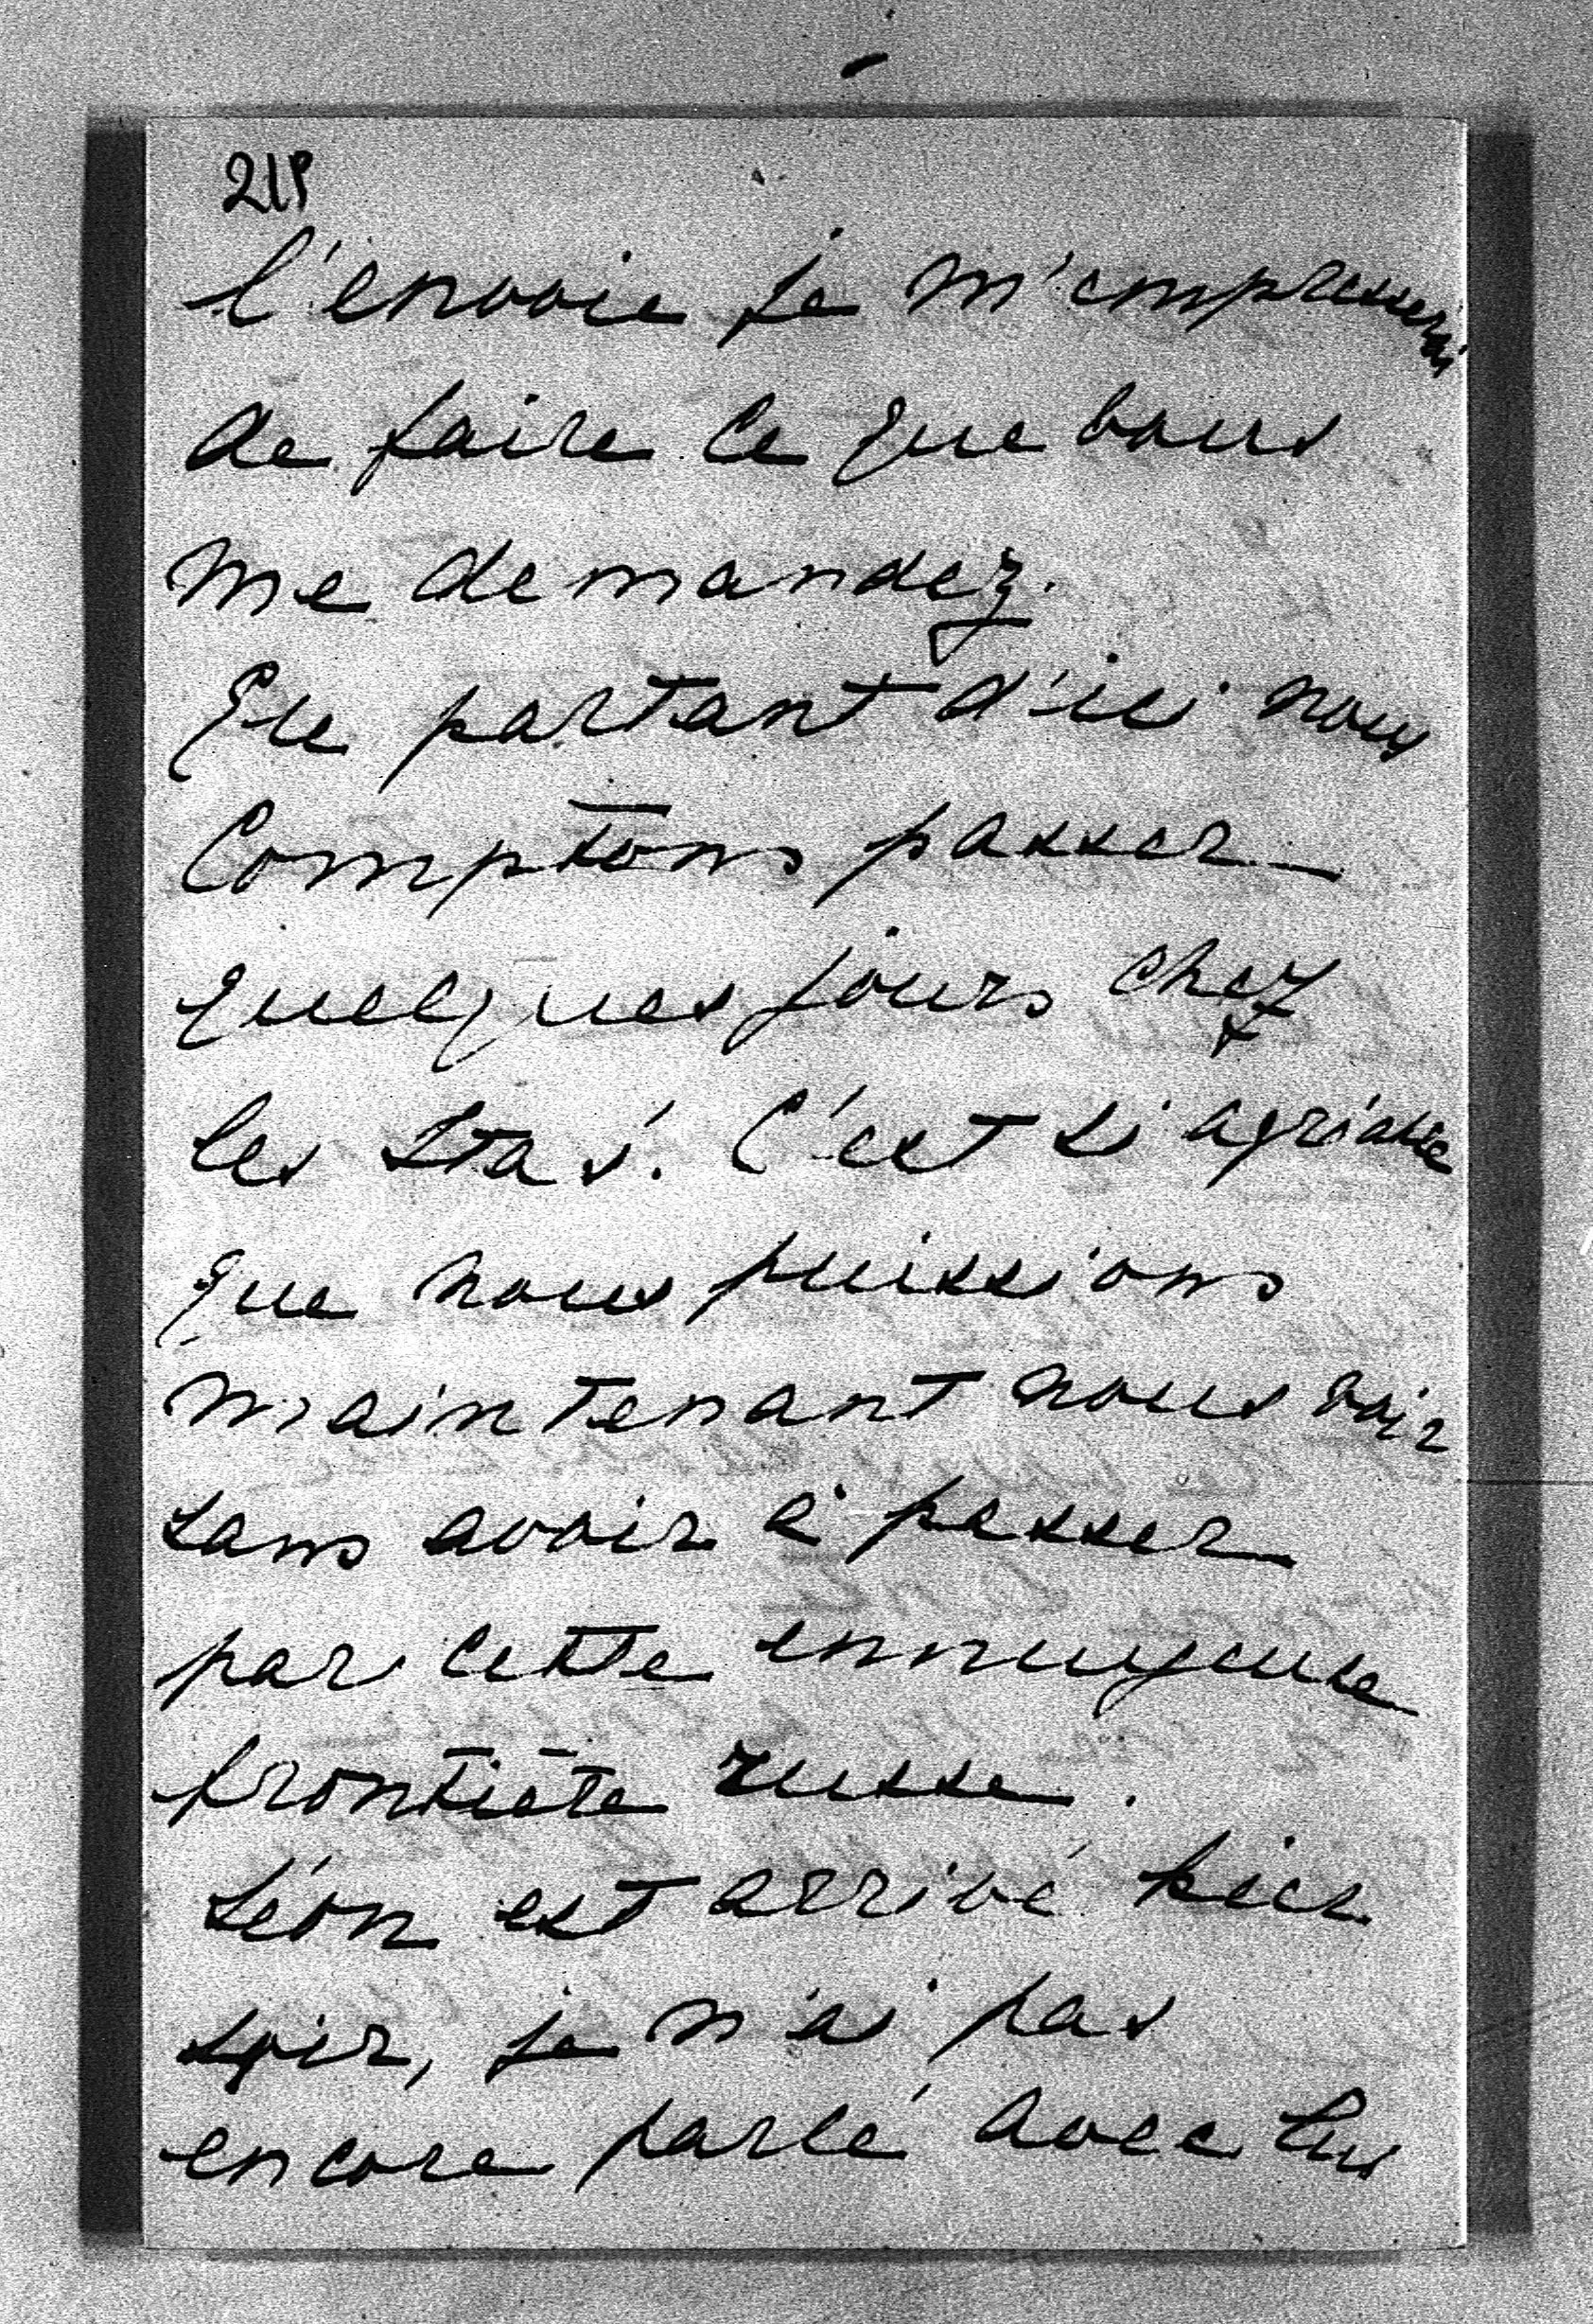 l'envoie je m'empresserai
de faire ce que vous
me demandez.
En partant d'ici nous
comptons passer
quelques jours chez
les Stas. C'est si agréable
que nous puissions
maintenant nous voir
sans avoir à passer
par cette ennuyeuse
frontière russe.
Léon est arrivé hier
soir, je n'ai pas
encore parlé avec lui